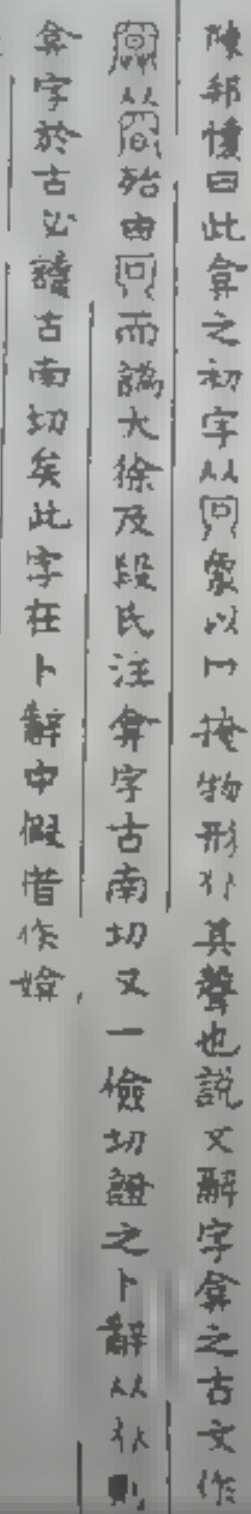 陳邦懷曰此弇之初字从象以冖掩物形其聲也說文解字弇之古文作
从殆由而譌大徐及段氏注弇字古南切又一儉切證之卜辭从則
弇字於古必讀古南切矣此字在卜辭中假借作媕